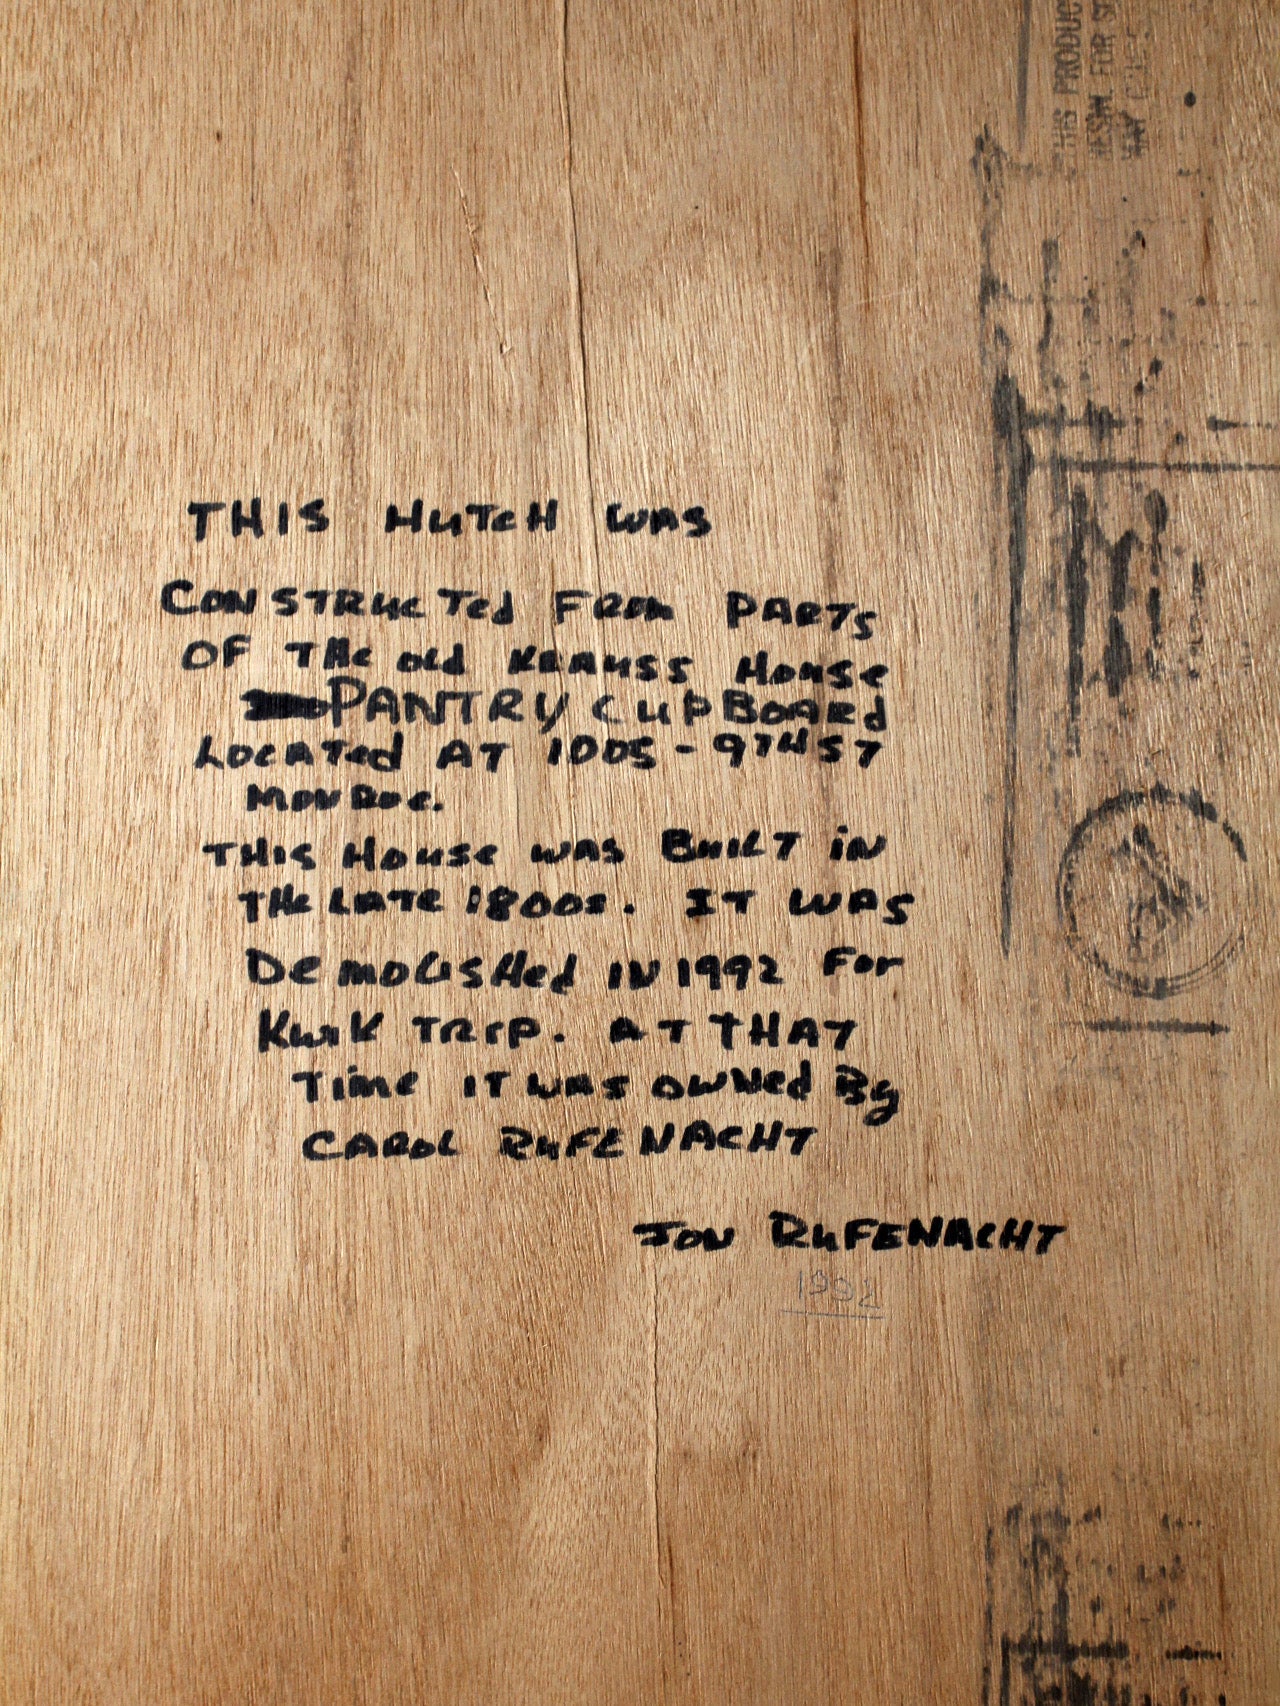 THIS HUTCH WAS
CONSTRUCTEd FROM PARTS
OF THE OLd KRAUSS HOUSE
PANTRY CUPBOARd
LOCATEd AT 1005 - 9TH ST
MONROE.
THIS HOUSE WAS BUILT iN
THE LATE 1800s. IT WAS
DEMOLISHEd IN 1992 For
KwiK TRIP. AT THAT
TimE IT WAS OWNEd By
CAROL RUFENACHT
JON RUFENACHT
1992
THIS PRODUC
FOR
MAY